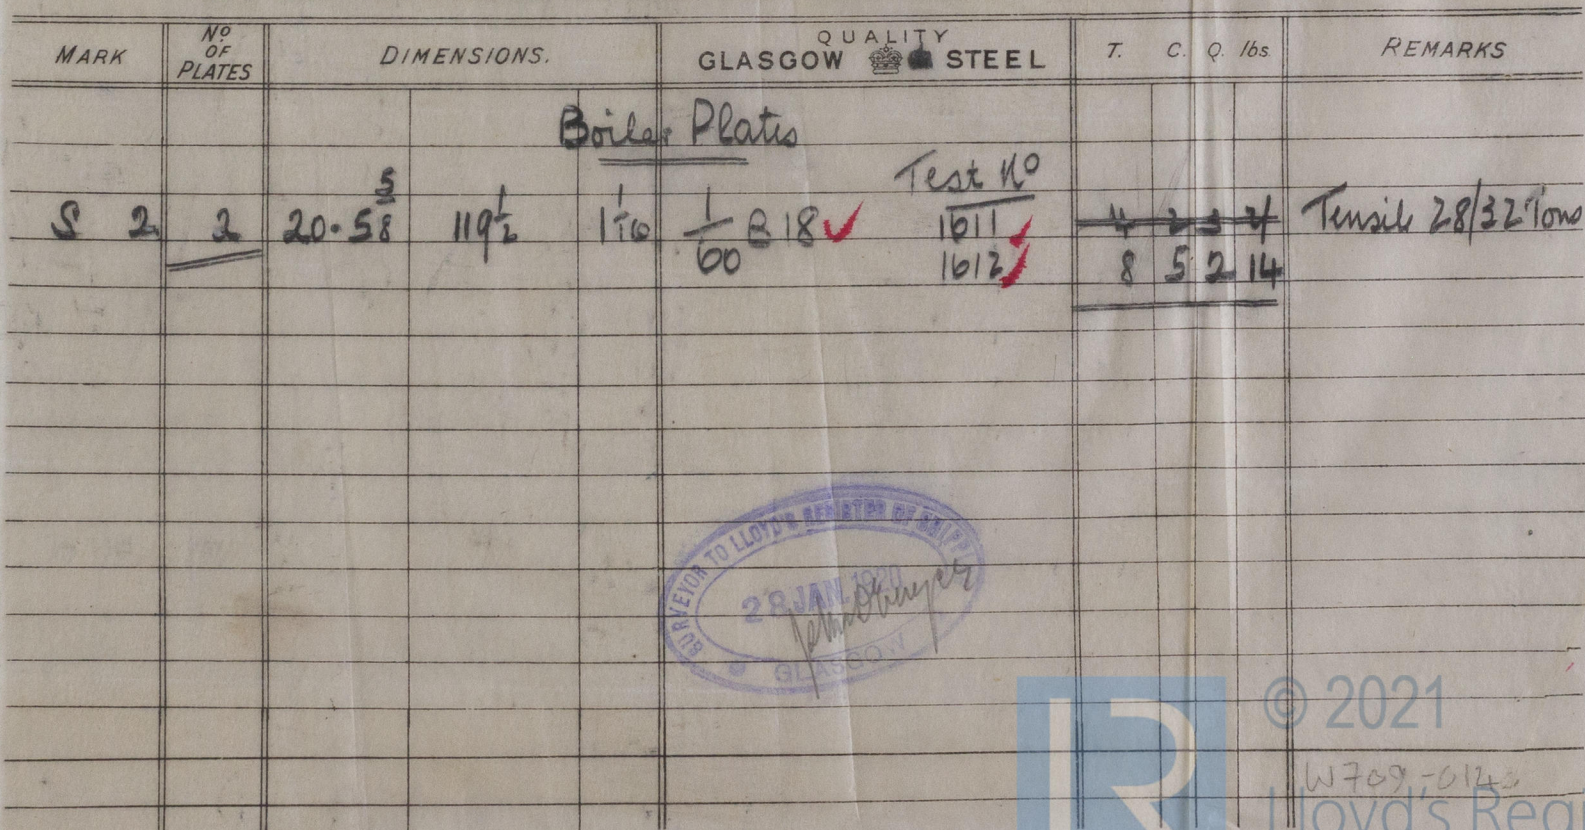 MARK Nº OF PLATES DIMENSIONS. QUALITY GLASGOW STEEL T. C. Q. lbs. REMARKS
Boiler Plates
Test Nº
S 2 2 20·5 5/8 119 1/2 1 1/16 1/60 B 18 1611 4 2 3 21 Tensile 28/32 Tons
1612 8 5 2 14
SURVEYOR TO LLOYD'S REGISTER OF SHIPPING
28 JAN. 1920
GLASGOW
© 2021
W709-014
Lloyd's Reg